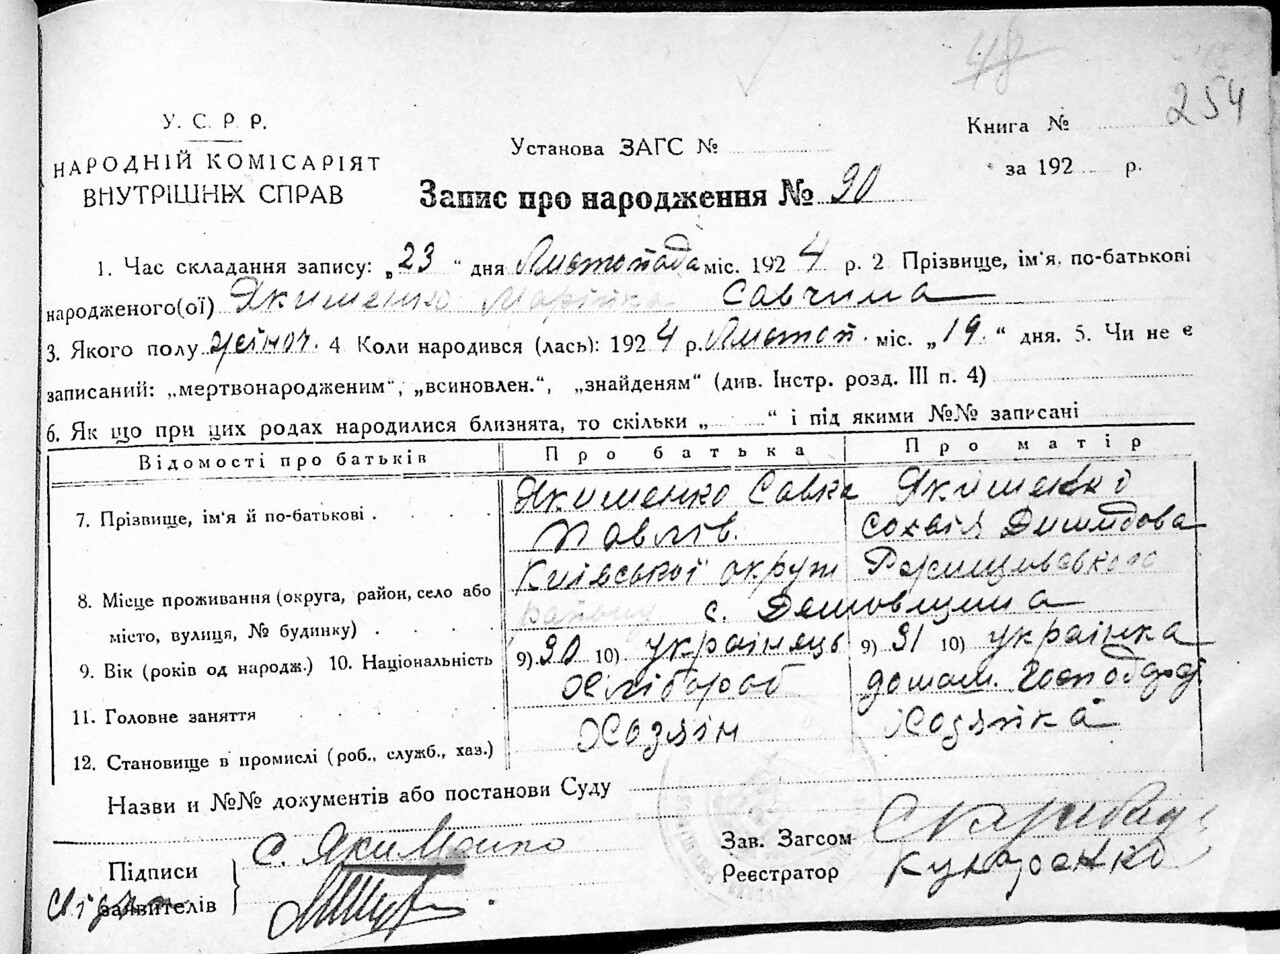 48
254
У. С. Р. Р.
НАРОДНІЙ КОМІСАРІЯТ
ВНУТРІШНІХ СПРАВ
Установа ЗАГС №
Книга №
за 192 р.
Запис про народження № 90
1. Час складання запису: „23“ дня Листопада міс. 1924 р. 2 Прізвище, ім'я, по-батькові
народженого(ої) Якименко Марійка Савчина
3. Якого полу жіноч. 4 Коли народився (лась): 1924 р. Листоп. міс. „19“ дня. 5. Чи не є
записаний: „мертвонародженим“, „всиновлен.“, „знайденям“ (див. Інстр. розд. III п. 4)
6. Як що при цих родах народилися близнята, то скільки „ “ і під якими №№ записані
Відомості про батьків Про батька Про матір
7. Прізвище, ім'я й по-батькові Якименко Савка Якименко
Павлів. Софія Демидова
8. Місце проживання (округа, район, село або Київської округи Ржищівського
місто, вулиця, № будинку) району с.
9. Вік (років од народж.) 10. Національність 9) 30 10) українець 9) 31 10) українка
11. Головне заняття Хлібороб домаш. Господар
12. Становище в промислі (роб., служб., хаз.) Хозяїн Хозяйка
Назви и №№ документів або постанови Суду
Підписи С. Якименко
заявителів
Зав. Загсом
Реєстратор